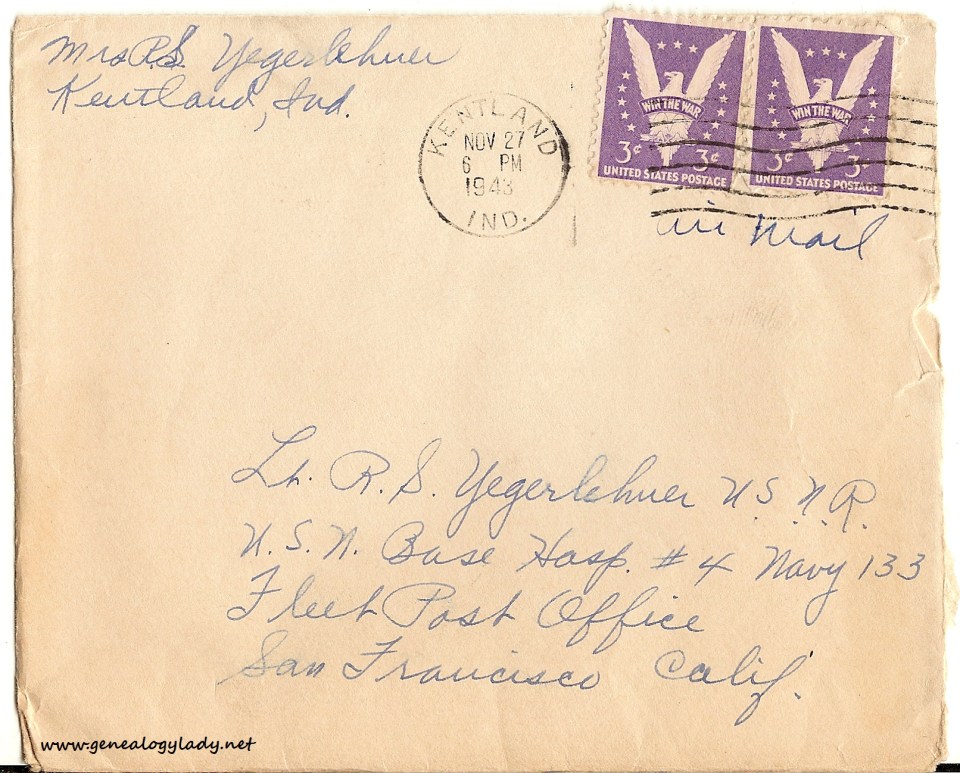 Mrs R.S. Yegerlehner
Kentland, Ind.
KENTLAND
NOV 27
6 PM
1943
IND.
WIN THE WAR
3¢ 3¢
UNITED STATES POSTAGE
WIN THE WAR
3¢ 3¢
UNITED STATES POSTAGE
Air Mail
Lt. R. S. Yegerlehner U.S.N.R.
U.S.N. Base Hosp. #4 Navy 133
Fleet Post Office
San Francisco Calif.
www.genealogylady.net